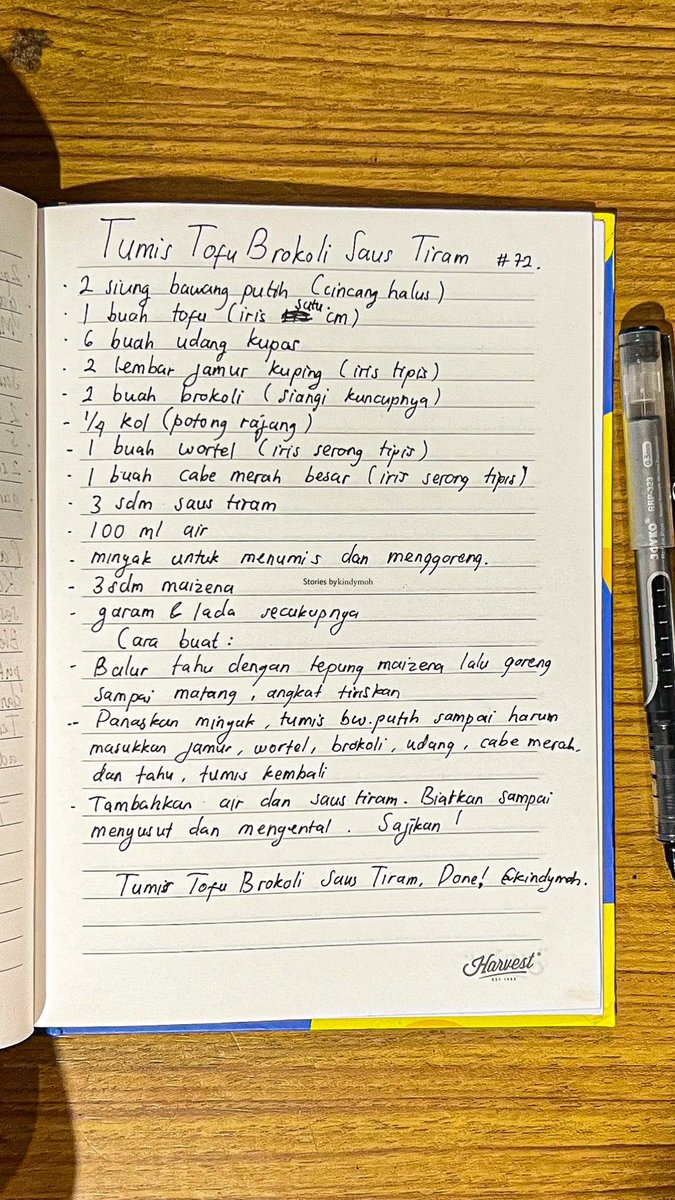 Tumis Tofu Brokoli Saus Tiram #72.
· 2 siung bawang putih (cincang halus)
· 1 buah tofu (iris satu cm)
· 6 buah udang kupas
· 2 lembar jamur kuping (iris tipis)
· 2 buah brokoli (siangi kuncupnya)
- 1/4 kol (potong rajang)
- 1 buah wortel (iris serong tipis)
· 1 buah cabe merah besar (iris serong tipis)
- 3 sdm saus tiram
- 100 ml air
- minyak untuk menumis dan menggoreng.
- 3 sdm maizena
Stories by kindymoh
- garam & lada secukupnya
Cara buat :
- Balur tahu dengan tepung maizena lalu goreng
sampai matang, angkat tiriskan
-- Panaskan minyak, tumis bw. putih sampai harum
masukkan jamur, wortel, brokoli, udang, cabe merah.
dan tahu, tumis kembali
- Tambahkan air dan saus tiram. Biarkan sampai
menyusut dan mengental. Sajikan!
Tumis Tofu Brokoli Saus Tiram, Done! @kindymoh.
Harvest
JOYKO